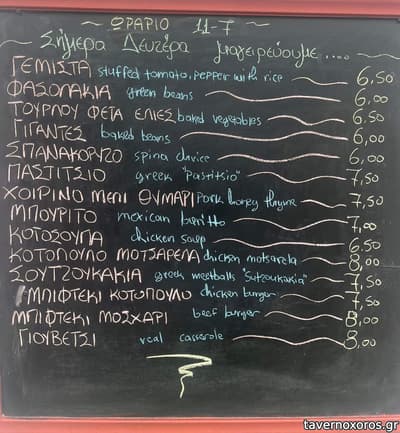 ~ ΩΡΑΡΙΟ 11-7 ~
Σήμερα Δευτέρα μαγειρεύουμε....
ΓΕΜΙΣΤΑ stuffed tomato, pepper with rice 6,50
ΦΑΣΟΛΑΚΙΑ green beans 6,00
ΤΟΥΡΛΟΥ ΦΕΤΑ ΕΛΙΕΣ baked vegetables 6.50
ΓΙΓΑΝΤΕΣ baked beans 6,00
ΣΠΑΝΑΚΟΡΥΖΟ spina davice 6,00
ΠΑΣΤΙΤΣΙΟ greek "Pastitsio" 7,50
ΧΟΙΡΙΝΟ ΜΕΛΙ ΘΥΜΑΡΙ Pork honey thyme 7,50
ΜΠΟΥΡΙΤΟ mexican buritto 7,00
ΚΟΤΟΣΟΥΠΑ chicken soup 6.50
ΚΟΤΟΠΟΥΛΟ ΜΟΤΣΑΡΕΛΑ chicken motsarela 8,00
ΣΟΥΤΖΟΥΚΑΚΙΑ greek meatballs "Sutzoukakia" 7,50
ΜΠΙΦΤΕΚΙ ΚΟΤΟΠΟΥΛΟ chicken burger 7,50
ΜΠΙΦΤΕΚΙ ΜΟΣΧΑΡΙ beef burger 8,00
ΓΙΟΥΒΕΤΣΙ veal casserole 8,00
tavernoxoros.gr